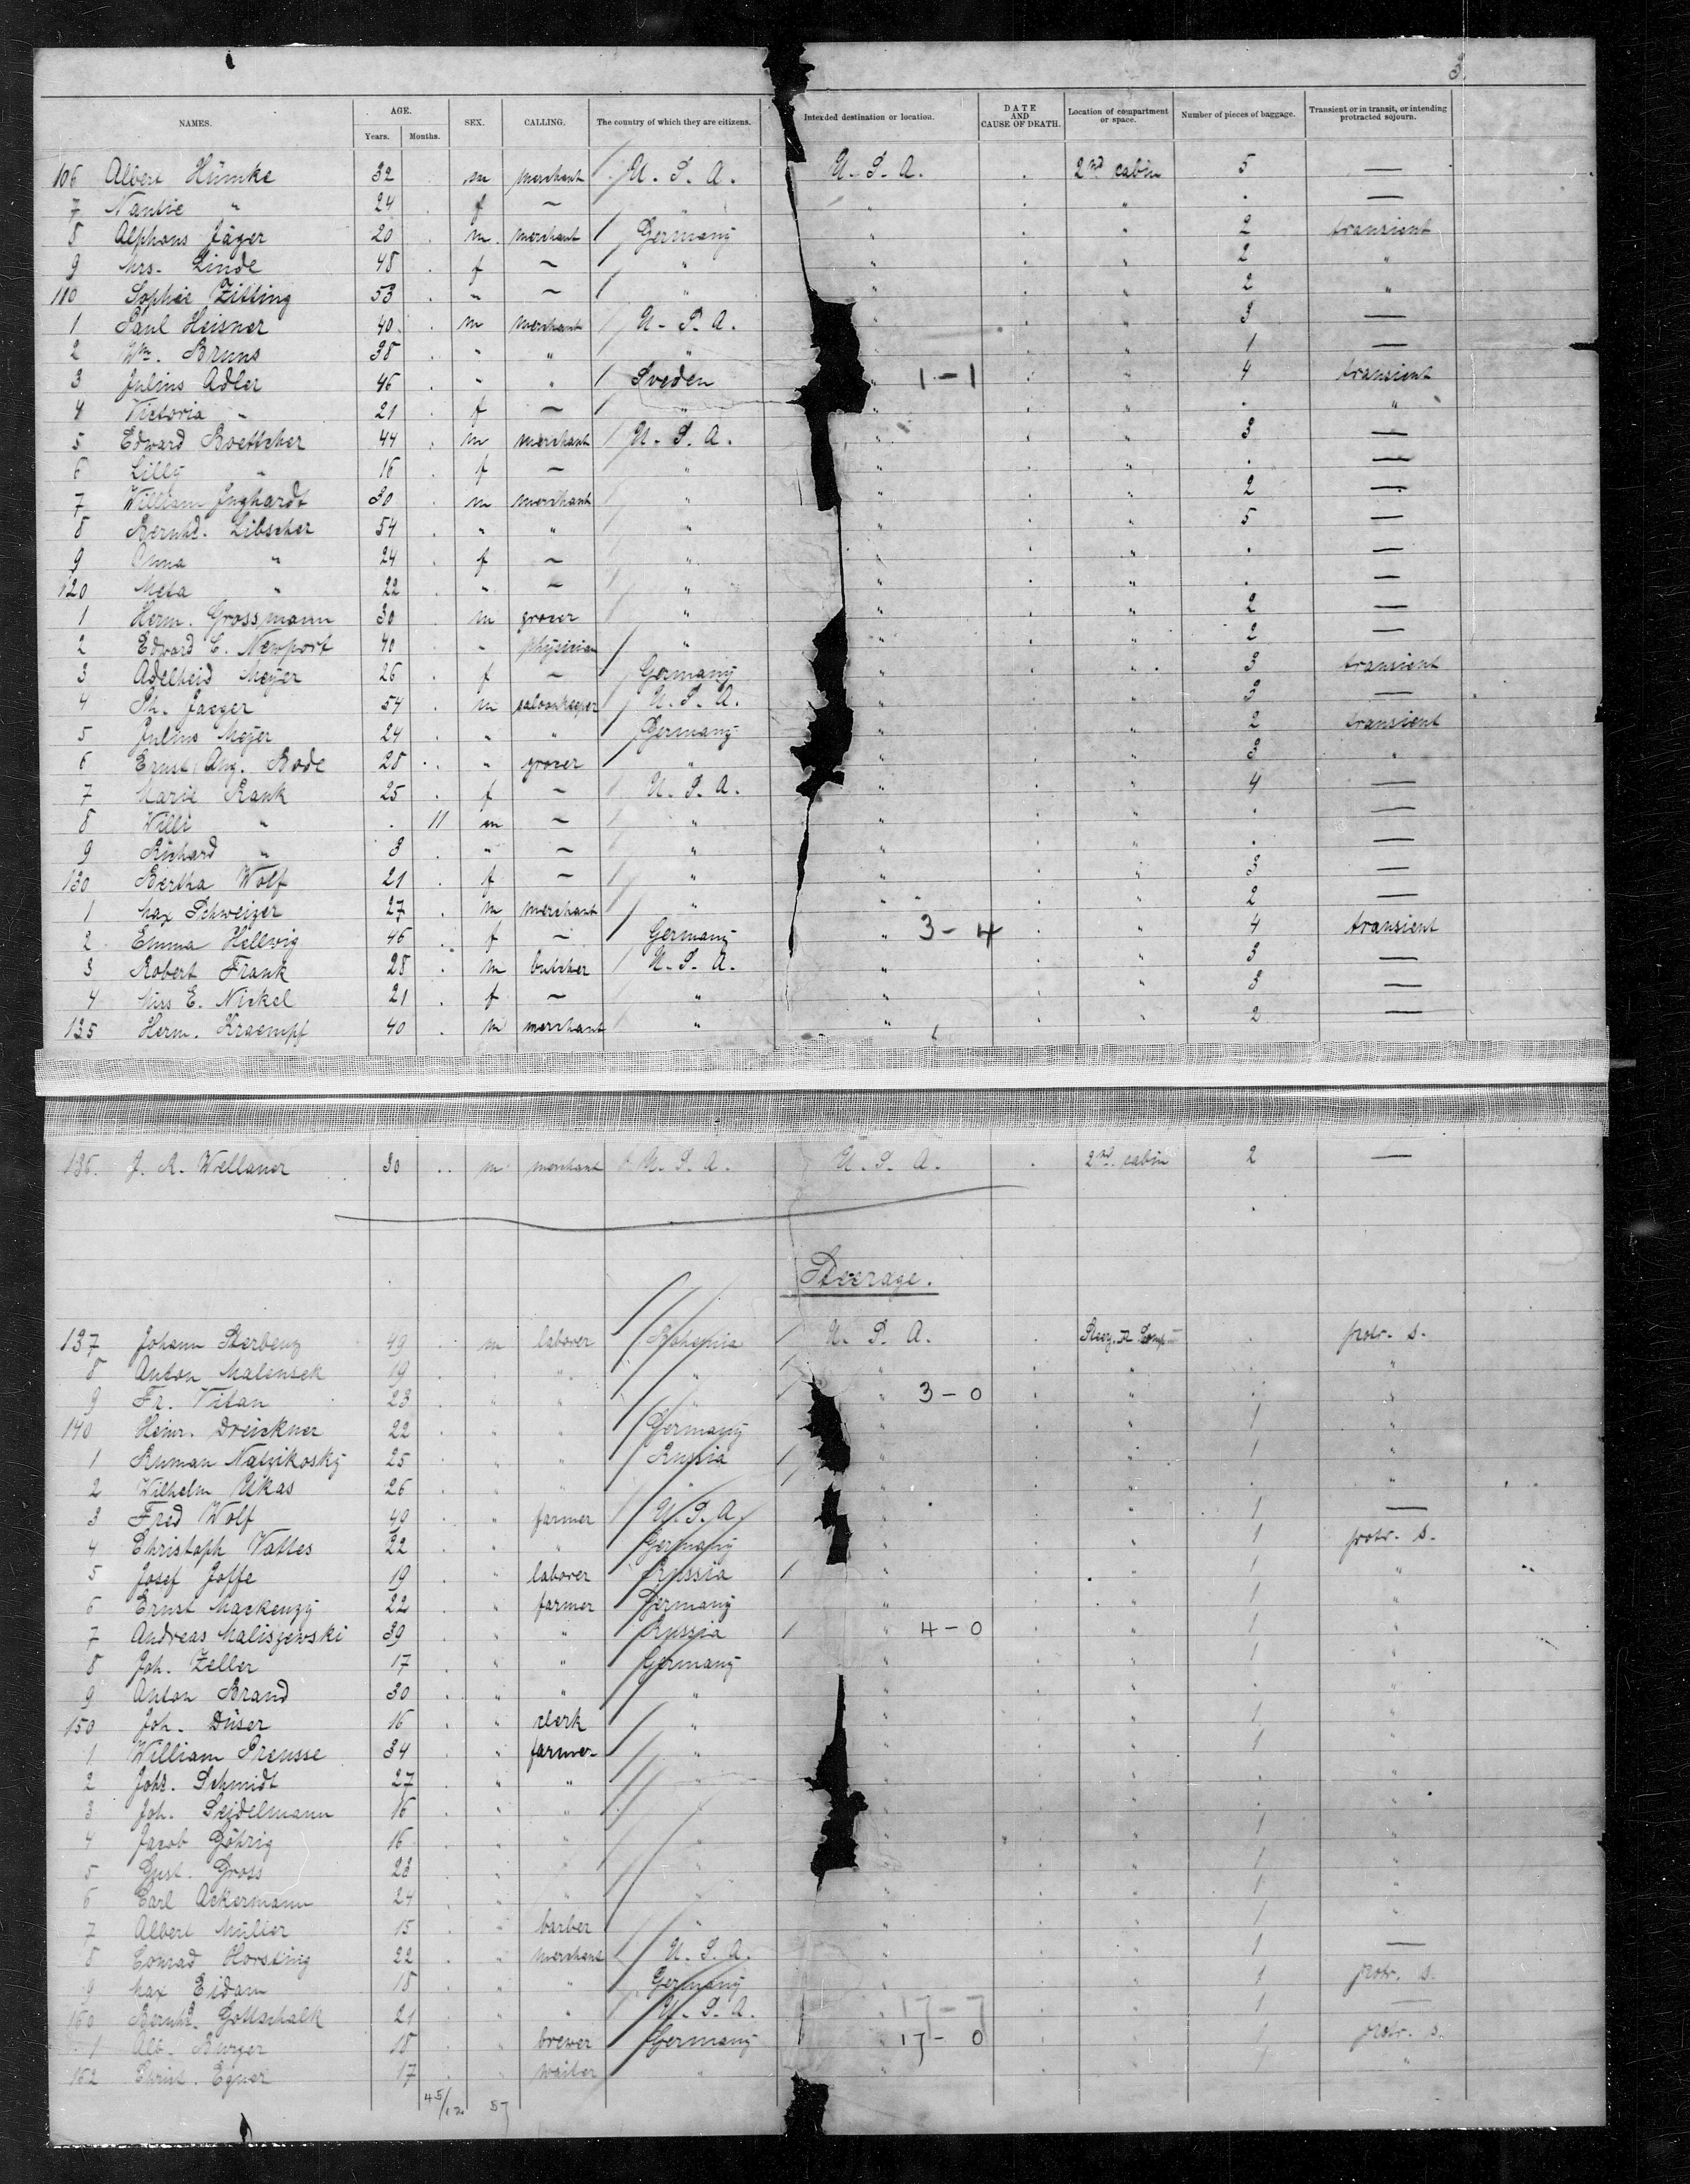 3.
NAMES. AGE. Years. Months. SEX. CALLING. The country of which they are citizens. Intended destination or location. DATE AND CAUSE OF DEATH. Location of compartment or space. Number of pieces of baggage. Transient or in transit, or intending protracted sojourn.
106 Albert Hümke 32 m merchant U. S. A. U. S. A. 2nd cabin 5 —
7 Nantie " 24 f — " " " . —
8 Alphons Jäger 20 m. merchant Germany " " 2 transient
9 Mrs. Linde 48 f — " " " 2 "
110 Sophie Zitting 53 " — " " " 2 "
1 Paul Heisner 40 m merchant U. S. A. " " 3 —
2 Wm. Bruns 38 " " " " " 1 —
3 Julius Adler 46 " " Sveden " 1-1 " 4 transient
4 Victoria " 21 f — " " " . "
5 Edward Boettcher 44 m merchant U. S. A. " " 3 —
6 Lilly " 16 f — " " " . —
7 William Inghardt 30 m merchant " " " 2 —
8 Bernhd. Libscher 54 " " " " " 5 —
9 Anna " 24 f — " " " . —
120 Meta " 22 " — " " " . —
1 Herm. Grossmann 30 m grocer " " " 2 —
2 Edward C. Newport 40 " physician " " " 2 —
3 Adelheid Meyer 26 f — Germany " " 3 transient
4 Ph. Jaeger 54 m saloonkeeper U. S. A. " " 3 —
5 Julius Meyer 24 " " Germany " " 2 transient
6 Ernst Aug. Bode 28 " grocer " " " 3 "
7 Marie Rank 25 f — U. S. A. " " 4 —
8 Willi " . 11 m — " " " . —
9 Richard " 3 " — " " " . —
130 Bertha Wolf 21 f — " " " 3 —
1 Max Schweizer 27 m merchant " " " 2 —
2 Emma Hellwig 46 f — Germany " 3-4 " 4 transient
3 Robert Frank 28 m butcher U. S. A. " " 3 —
4 Miss E. Nickel 21 f — " " " 3 —
135 Herm. Kraempf 40 m merchant " " " 2 —
136. J. A. Wellauer 30 m merchant U. S. A. U. S. A. 2nd cabin 2 —
Steerage.
137 Johann Sterbenz 49 m laborer Bohemia U. S. A. Steer. Comp . protr. s.
8 Anton Malensek 19 " " " " " . "
9 Fr. Vitan 23 " " " " 3-0 " . "
140 Heinr. Dreickner 22 " " Germany " " 1 "
1 Ruman Natzikosky 25 " " Russia " " 1 "
2 Wilhelm Ukas 26 " " " " " . "
3 Fred Wolf 49 " farmer U. S. A. " " 1 —
4 Christoph Vattes 22 " " Germany " " 1 protr. s.
5 Josef Joffe 19 " laborer Russia " " 1 "
6 Ernst Mackenzy 22 " farmer Germany " " 1 "
7 Andreas Maliszewski 39 " " Russia " 4-0 " 1 "
8 Joh. Zeller 17 " " Germany " " 1 "
9 Anton Brand 30 " " " " " . "
150 Joh. Düser 16 " clerk " " " 1 "
1 William Preusse 34 " farmer " " " 1 "
2 Johs. Schmidt 27 " " " " " . "
3 Joh. Seidelmann 16 " " " " " . "
4 Jacob Göhrig 16 " " " " " 1 "
5 Gust. Gross 23 " " " " " 1 "
6 Carl Ackermann 24 " " " " " 1 "
7 Albert Müller 15 " barber " " " 1 "
8 Conrad Horsting 22 " merchant U. S. A. " " 1 —
9 Max Eidam 18 " " Germany " " 1 protr. s.
160 Bernhd. Gottschalk 21 " " U. S. A. " 17-7 " 1 —
1 Alb. Burger 18 " brewer Germany " 17-0 " 1 protr. s.
162 Christ. Egner 17 " waiter " " " 1 "
45/12 57